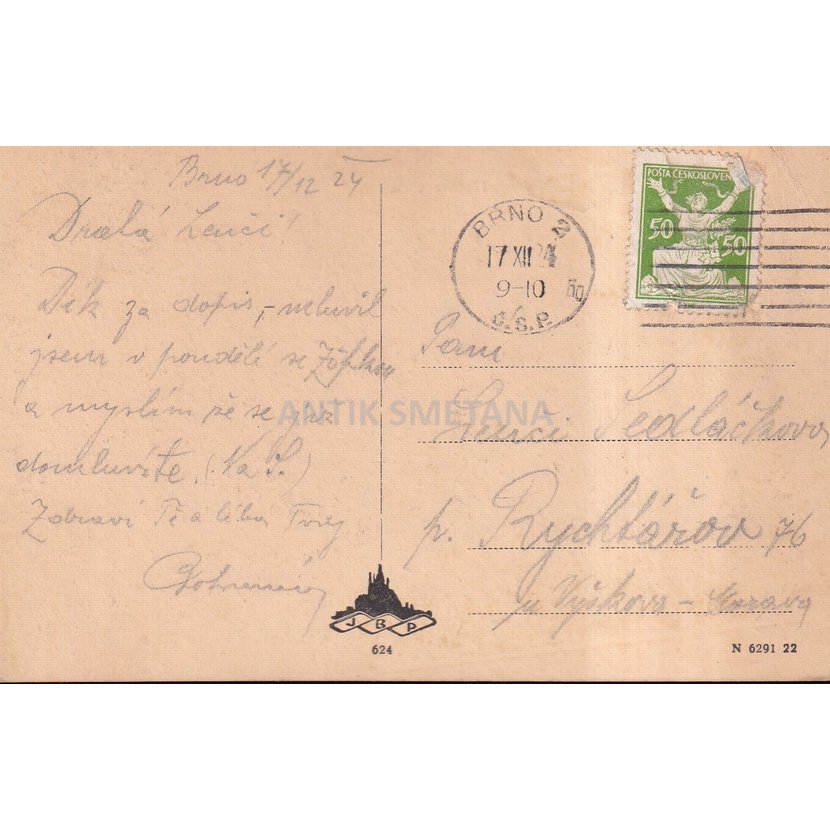 Brno 17/12 24
Drahá Lenči!
Dík za dopis, – mluvil
jsem v pondělí se
a myslím že se
domluvíte. (Na S.)
Zdraví Tě a líbá Tvůj
BRNO 2
17 XII 24
9-10
Č.S.P.
POŠTA ČESKOSLOVEN
50 50
Paní
Lenči Sedláčkova
p. Rychtářov 76
u Vyškova – Morava
ANTIK SMETANA
J B P
624
N 6291 22